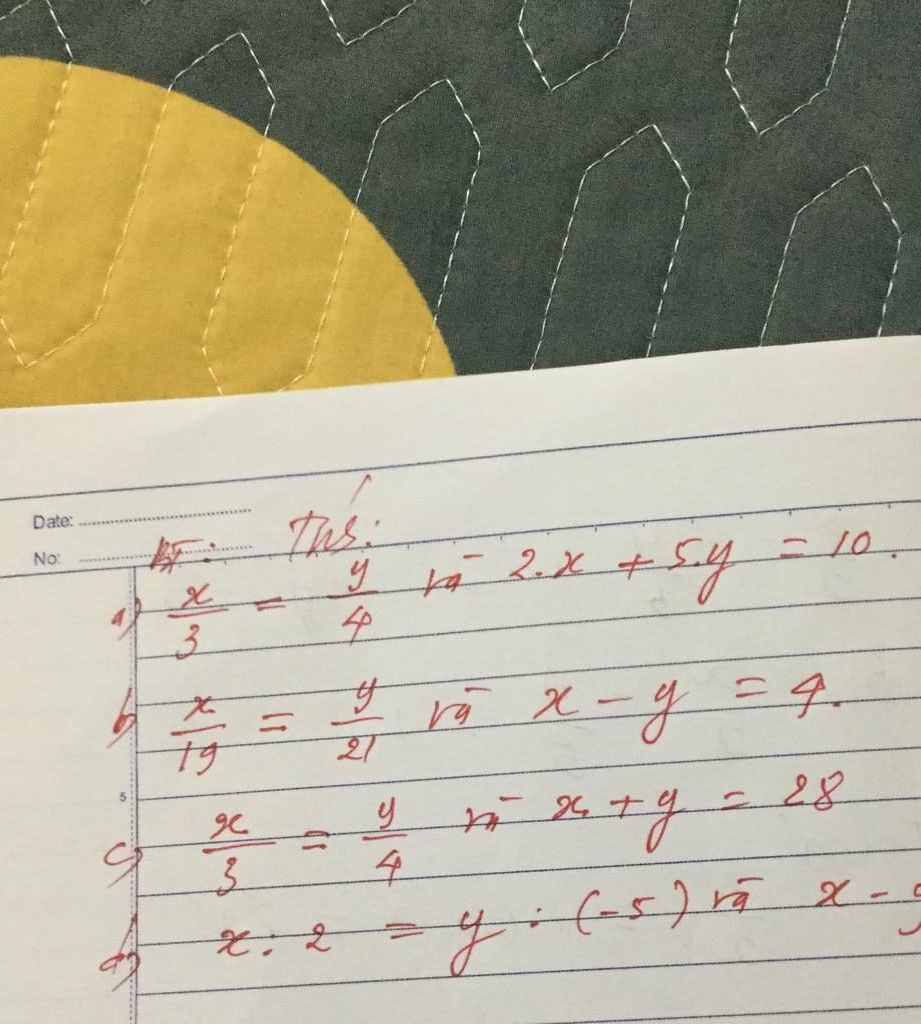 Date:
No:
BT: Tìm:
a) x/3 = y/4 và 2.x + 5.y = 10.
b) x/19 = y/21 và x - y = 4.
5
c) x/3 = y/4 và x + y = 28
d) x : 2 = y : (-5) và x -